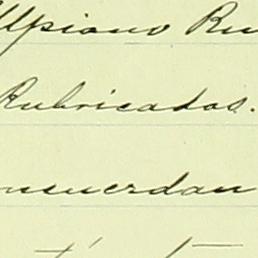 Ulpiano Ru
Rubricados.
ncuerdan